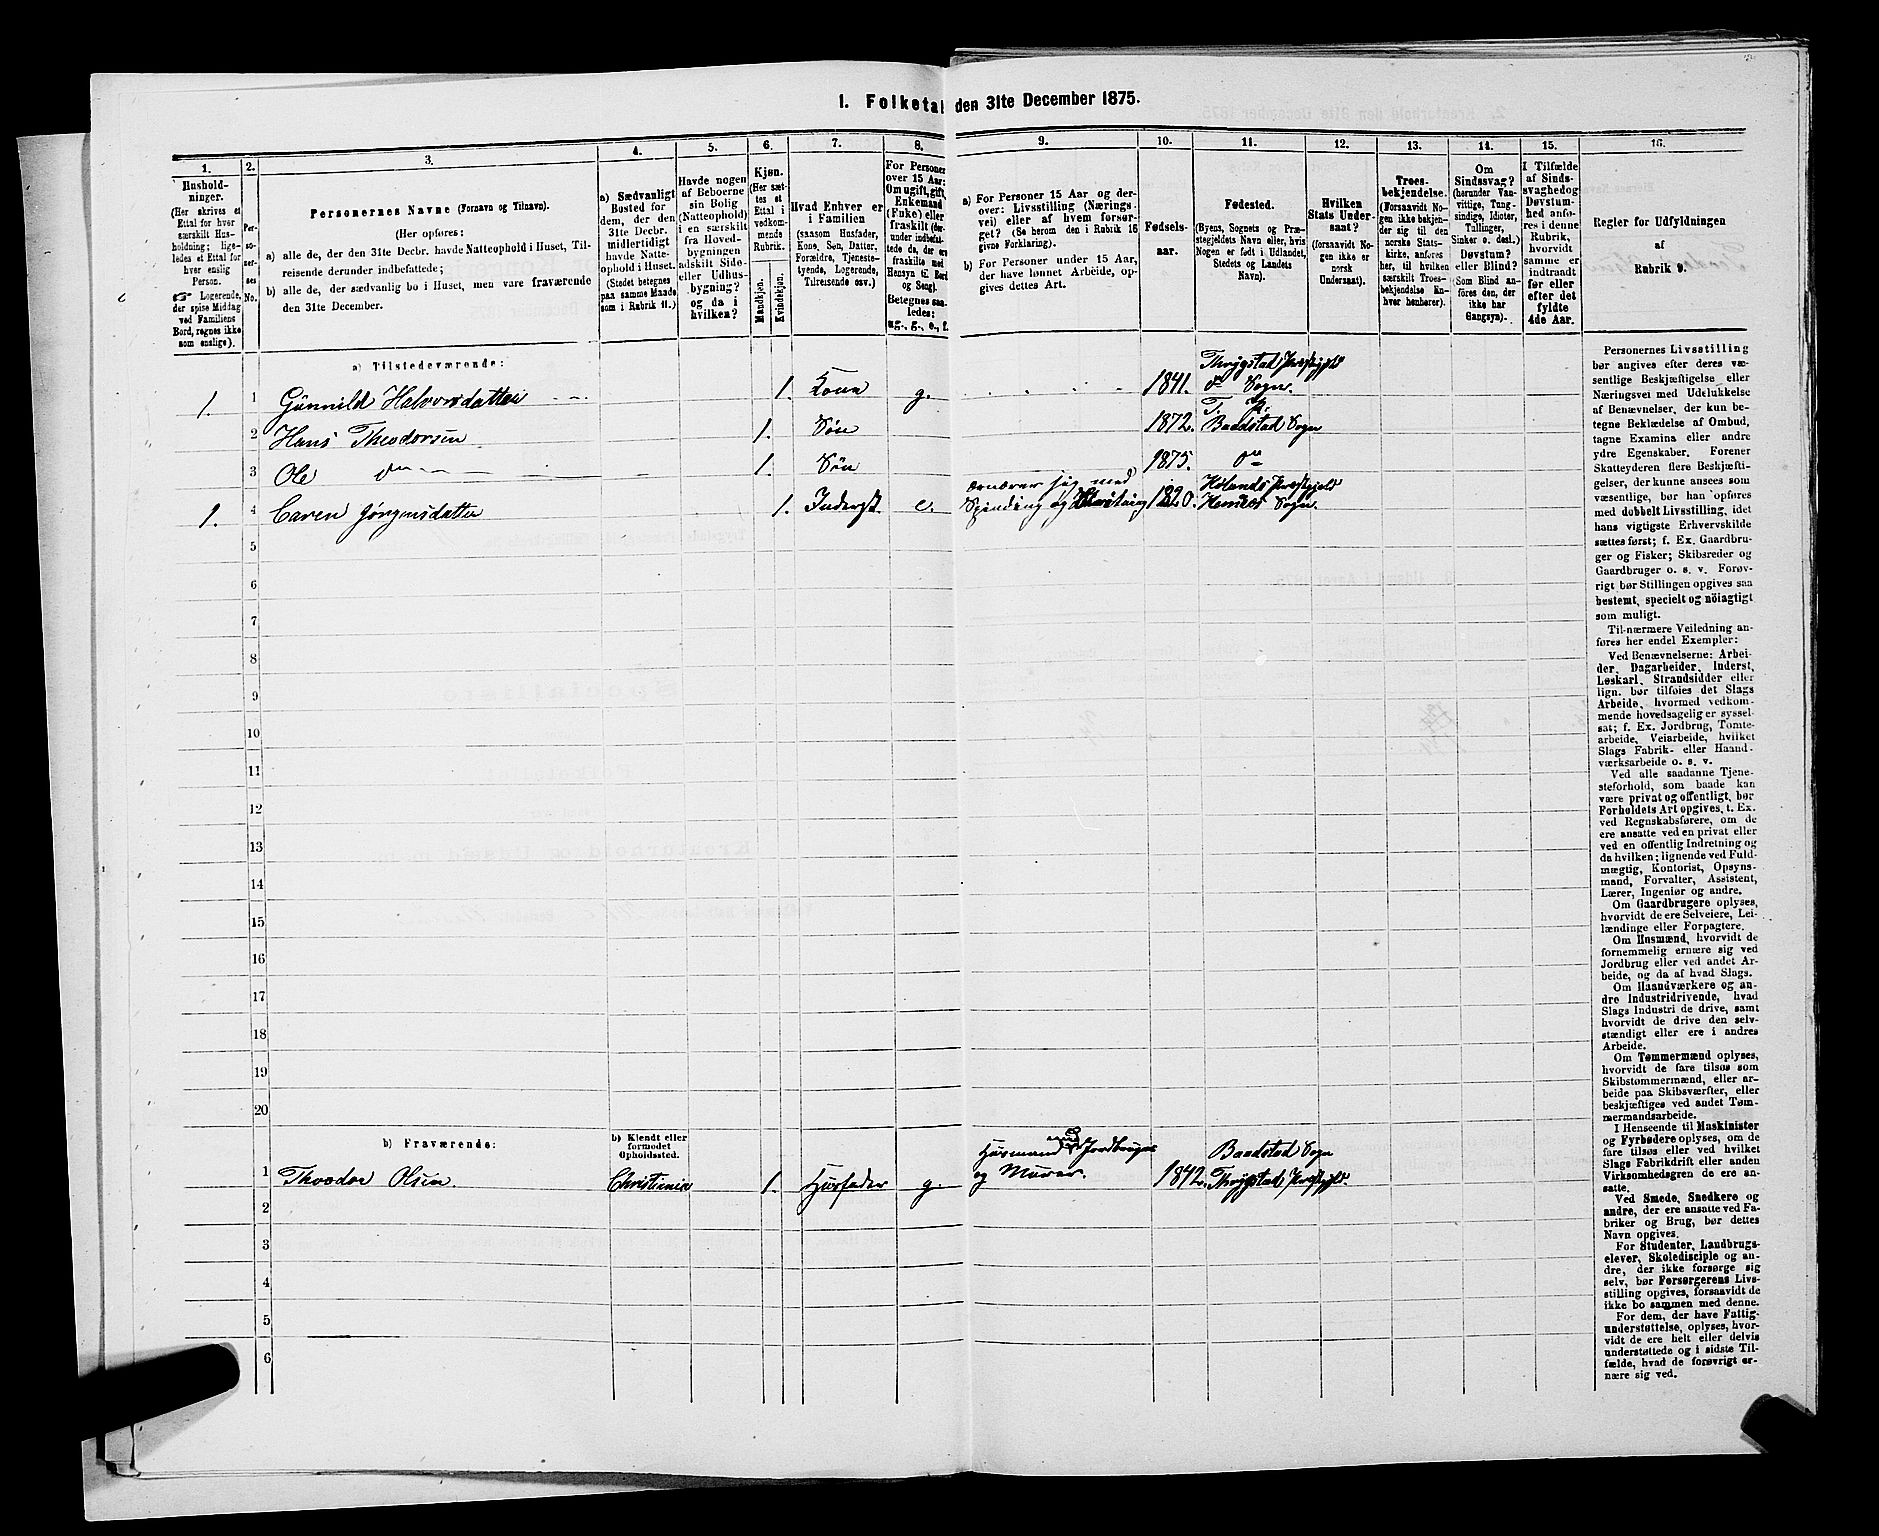 1. Folketal den 31te December 1875.
1. 2. 3. 4. 5. 6. 7. 8. 9. 10. 11. 12. 13. 14. 15. 16.
Hushold-
ninger.
(Her skrives et
Ettal for hver
særskilt Hus-
holdning; lige-
ledes et Ettal for
hver enslig
Person.
☞ Logerende,
der spise Middag
ved Familiens
Bord, regnes ikke
som enslige).
Per-
so-
ner-
nes
No.
Personernes Navne (Fornavn og Tilnavn).
(Her opføres:
a) alle de, der den 31te Decbr. havde Natteophold i Huset, Til-
reisende derunder indbefattede;
b) alle de, der sædvanlig bo i Huset, men vare fraværende
den 31te December.
a) Sædvanligt
Bosted for
dem, der den
31te Decbr.
midlertidigt
havde Natte-
ophold i Huset.
(Stedet betegnes
paa samme Maade
som i Rubrik 11.)
Havde nogen
af Beboerne
sin Bolig
(Natteophold)
i en særskilt
fra Hoved-
bygningen
adskilt Side-
eller Udhus-
bygning?
og da i
hvilken?
Kjøn.
(Her sæt-
tes et
Ettal i
vedkom-
mende
Rubrik.
Mandkjøn.
Kvindekjøn.
Hvad Enhver er
i Familien
(saasom Husfader,
Kone, Søn, Datter,
Forældre, Tjeneste-
tyende, Logerende,
Tilreisende osv.)
For Personer
over 15 Aar:
Om ugift, gift,
Enkemand
(Enke) eller
fraskilt (der-
under indbefat-
tede de, der ere
fraskilte med
Hensyn til Bord
og Seng).
Betegnes saa-
ledes:
ug., g., e., f.
a) For Personer 15 Aar og der-
over: Livsstilling (Nærings-
vei) eller af hvem forsør-
get? (Se herom den i Rubrik 16
givne Forklaring).
b) For Personer under 15 Aar,
der have lønnet Arbeide, op-
gives dettes Art.
Fødsels-
aar.
Fødested.
(Byens, Sognets og Præ-
stegjeldets Navn eller, hvis
Nogen er født i Udlandet,
Stedets og Landets
Navn).
Hvilken
Stats Under-
saat?
(forsaavidt No-
gen ikke er
norsk
Undersaat).
Troes-
bekjendelse.
(Forsaavidt No-
gen ikke bekjen-
der sig til den
norske Stats-
kirke, anføres
her, til hvilken
særskilt Troes-
bekjendelse En-
hver henhører).
Om
Sindssvag?
(herunder Van-
vittige, Tung-
sindige, Idioter,
Tullinger,
Sinker o. desl.)
Døvstum?
eller Blind?
(Som Blind an-
føres den, der
ikke har
Gangsyn).
I Tilfælde
af Sinds-
svaghed og
Døvstum-
hed anfø-
res i denne
Rubrik,
hvorvidt
samme er
indtraadt
før eller
efter det
fyldte
4de Aar.
Regler for Udfyldningen
af
Rubrik 9.
a) Tilstedeværende:
1. 1 Gunnild Halvorsdatter 1. Kone g. 1841. Thrygstad Præstgjeld do Sogn.
2 Hans Theodorsen 1. Søn 1872. T. P. Baadstad Sogn
3 Ole do 1. Søn 1875. do
1. 4 Caren Jørgensdatter 1. Inderst. e. ernærer sig med Spinding og 1820. Hølands Præstgjeld Hemnes Sogn.
5
6
7
8
9
10
11
12
13
14
15
16
17
18
19
20
b) Fraværende:
b) Kjendt eller
formodet
Opholdssted.
1 Theodor Olsen. Christiania 1. Husfader g. Husmand med Jordbruger og Murer. 1842. Baadstad Sogn Thrygstad Præstgjld.
2
3
4
5
6
Personernes Livsstilling
bør angives efter deres væ-
sentlige Beskjæftigelse eller
Næringsvei med Udelukkelse
af Benævnelser, der kun be-
tegne Beklædelse af Ombud,
tagne Examina eller andre
ydre Egenskaber. Forener
Skatteyderen flere Beskjæfti-
gelser, der kunne ansees som
væsentlige, bør han opføres
med dobbelt Livsstilling, idet
hans vigtigste Erhvervskilde
sættes først; f. Ex. Gaardbru-
ger og Fisker; Skibsreder og
Gaardbruger o. s. v. Forøv-
rigt bør Stillingen opgives saa
bestemt, specielt og nöiagtigt
som muligt.
Til nærmere Veiledning an-
føres her endel Exempler:
Ved Benævnelserne: Arbei-
der, Dagarbeider, Inderst,
Løskarl, Strandsidder eller
lign. bør tilføies det Slags
Arbeide, hvormed vedkom-
mende hovedsagelig er syssel-
sat; f. Ex. Jordbrug, Tomte-
arbeide, Veiarbeide, hvilket
Slags Fabrik- eller Haand-
værksarbeide o. s. v.
Ved alle saadanne Tjene-
steforhold, som baade kan
være privat og offentligt, bør
Forholdets Art opgives, t. Ex.
ved Regnskabsførere, om de
ere ansatte ved en privat eller
ved en offentlig Indretning og
da hvilken; lignende ved Fuld-
mægtig, Kontorist, Opsyns-
mand, Forvalter, Assistent,
Lærer, Ingeniør og andre.
Om Gaardbrugere oplyses,
hvorvidt de ere Selveiere, Lei-
lændinge eller Forpagtere.
Om Husmænd, hvorvidt de
fornemmelig ernære sig ved
Jordbrug eller ved andet Ar-
beide, og da af hvad Slags.
Om Haandværkere og an-
dre Industridrivende, hvad
Slags Industri de drive, samt
hvorvidt de drive den selv-
stændigt eller ere i andres
Arbeide.
Om Tømmermænd oplyses,
hvorvidt de fare tilsøs som
Skibstømmermænd, eller ar-
beide paa Skibsværfter, eller
beskjæftiges ved andet Tøm-
mermandsarbeide.
I Henseende til Maskinister
og Fyrbødere oplyses, om de
fare tilsøs eller ved hvilket
Slags Fabrikdrift eller anden
Virksomhedsgren de ere an-
satte.
Ved Smede, Snedkere og
andre, der ere ansatte ved Fa-
briker og Brug, bør dettes
Navn opgives.
For Studenter, Landbrugs-
elever, Skoledisciple og an-
dre, der ikke forsørge sig
selv, bør Forsørgerens Livs-
stilling opgives, forsaavidt de
ikke bo sammen med denne.
For dem, der have Fattig-
understøttelse, oplyses, hvor-
vidt de ere helt eller delvis
understøttede og i sidste Til-
fælde, hvad de forøvrigt er-
nære sig ved.